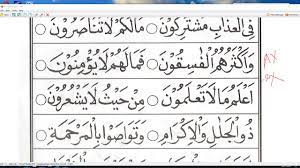 فِي الْعَذَابِ مُشْتَرِكُونَ ○ مَالَكُمْ لَا تَنَاصَرُونَ ○
وَأَكْثَرُهُمُ الْفَاسِقُونَ ○ فَمَالَهُمْ لَا يُؤْمِنُونَ ○
أَعْلَمُ مَا لَا تَعْلَمُونَ ○ مِنْ حَيْثُ لَا يَشْعُرُونَ ○
ذُو الْجَلَالِ وَالْإِكْرَامِ ○ وَتَوَاصَوْا بِالْمَرْحَمَةِ ○